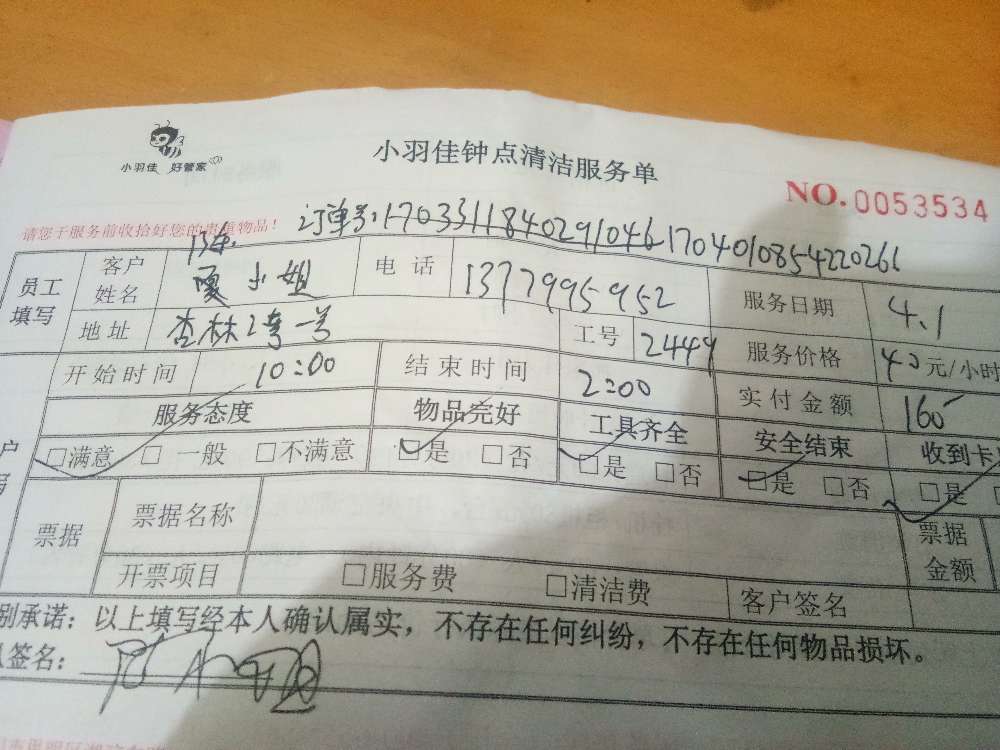 小羽佳 好管家
小羽佳钟点清洁服务单
NO.0053534
请您于服务前收拾好您的贵重物品!
订单号:1703311840291046 1704010854220261
员工填写 客户姓名 小姐 电话 1377995952 服务日期 4.1
地址 杏林 一号 工号 2449 服务价格 40元/小时
开始时间 10:00 结束时间 2:00 实付金额 160
服务态度 物品完好 工具齐全 安全结束 收到卡
□满意 □一般 □不满意 □是 □否 □是 □否 □是 □否 □是
票据 票据名称 票据金额
开票项目 □服务费 □清洁费 客户签名
别承诺:以上填写经本人确认属实,不存在任何纠纷,不存在任何物品损坏。
签名: